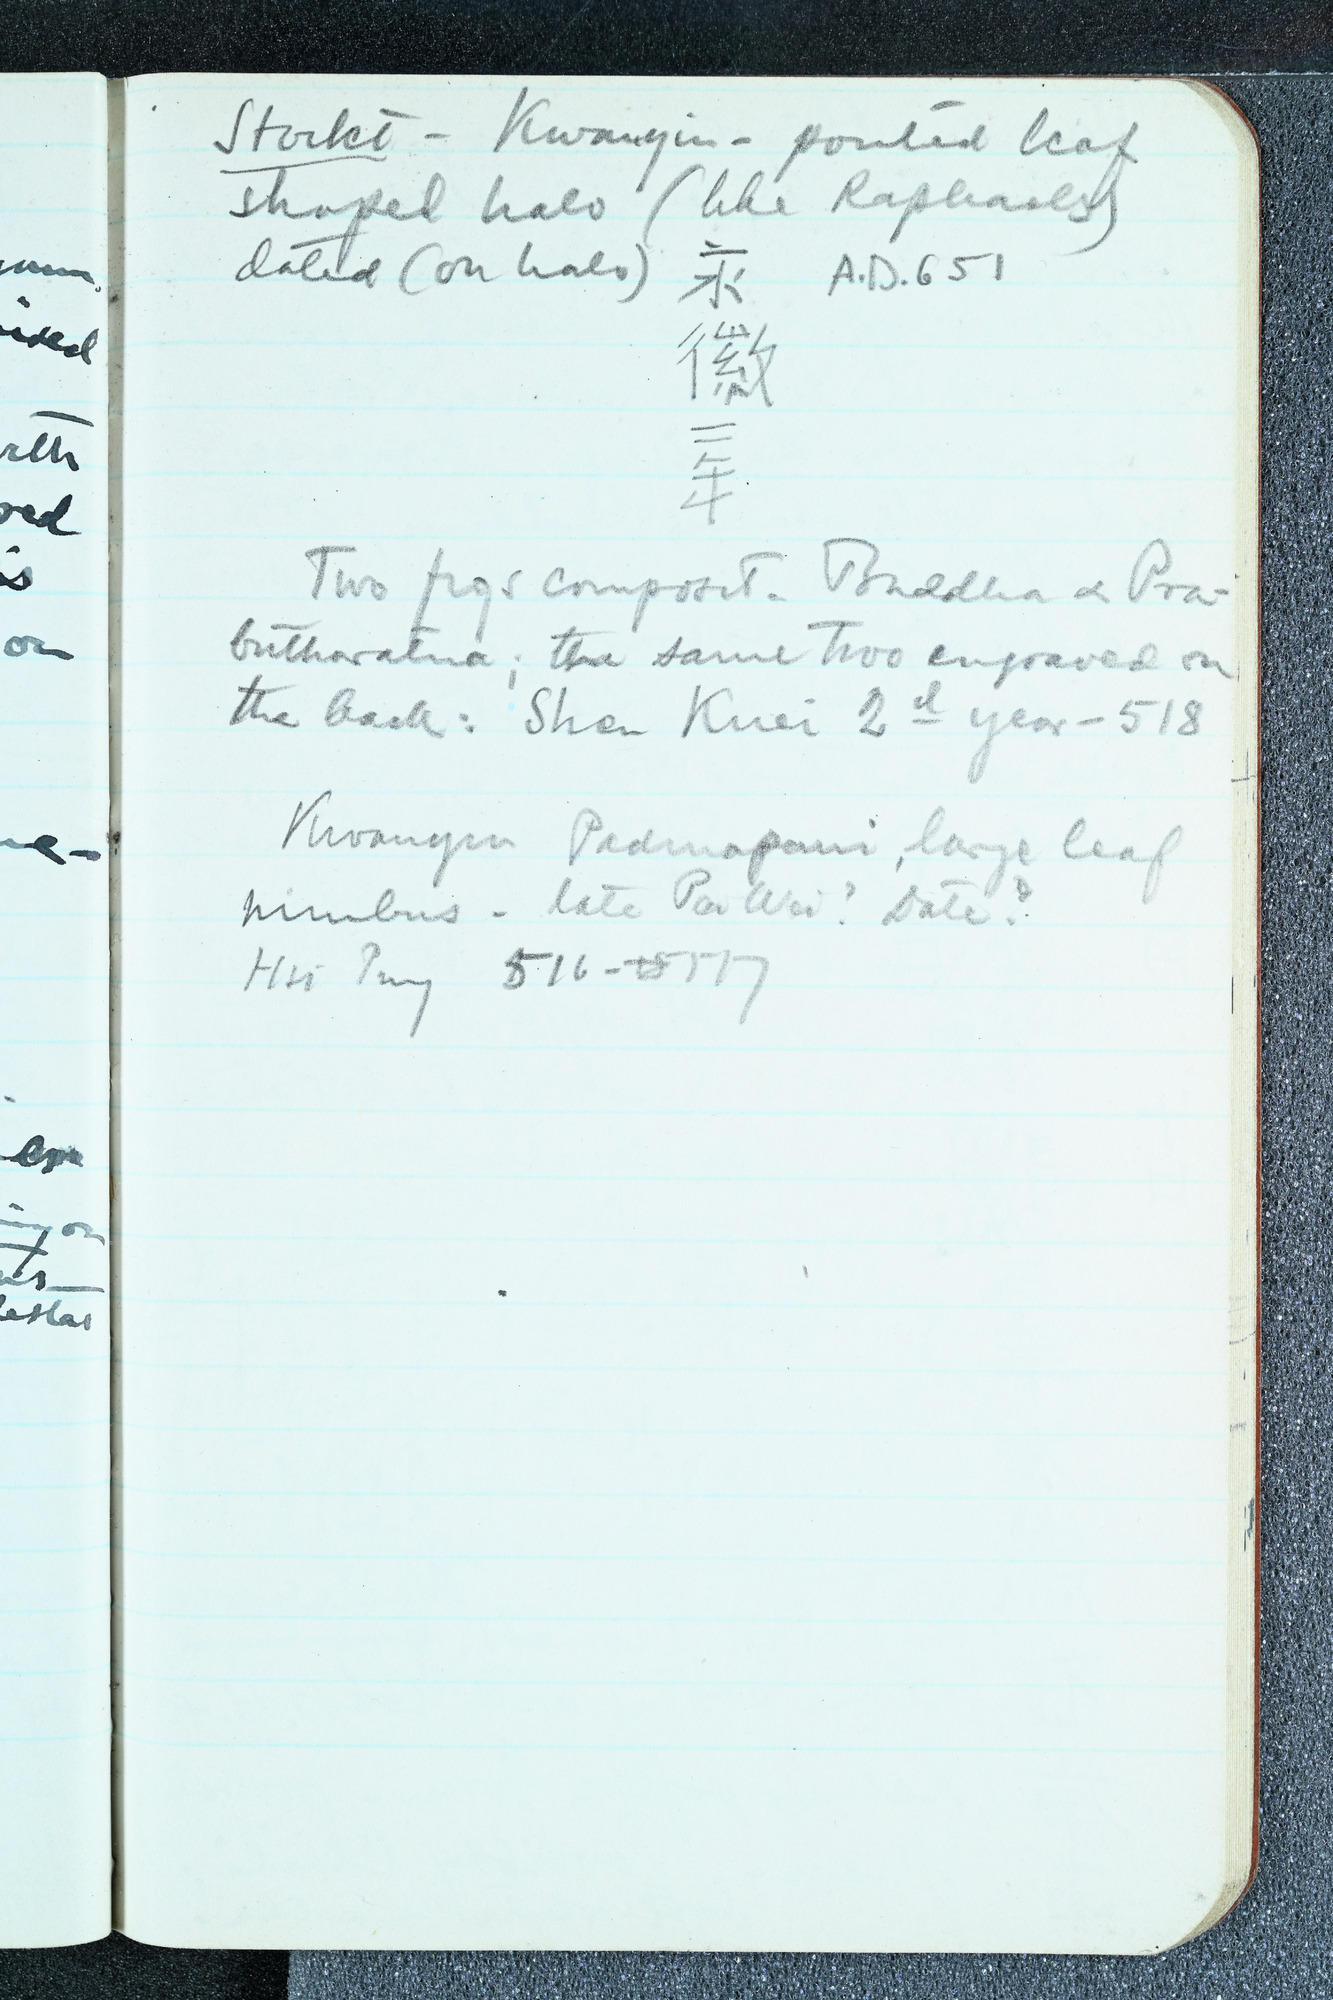 Stockt - Kwanyin - pointed leaf
shaped halo (like Raphaels)
dated (on halo) 永 A.D. 651
徽
二
年
Two figs composit. Buddha & Pra-
buthoratna; the same two engraved on
the back: Shen Kuei 2d year - 518
Kwanyin Padmapani, large leaf
nimbus - late Pei Wei? Date?
Hsi Ping 516-517
ixed
on